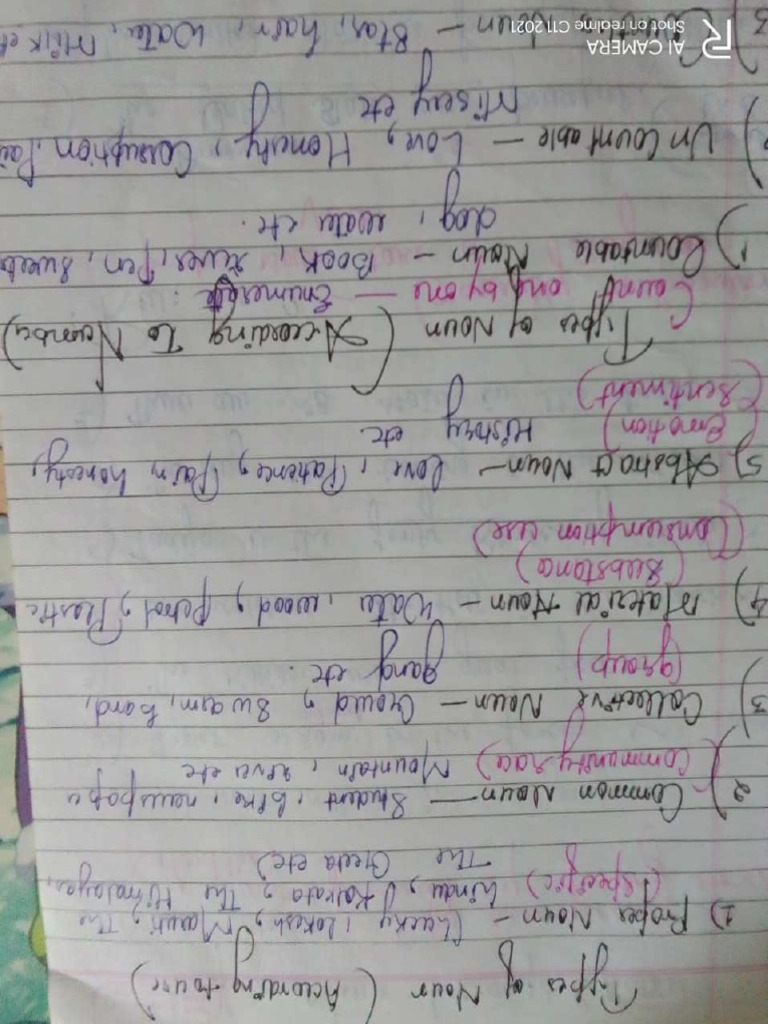 Types of Noun (According to use)
1) Proper Noun - Chucky, Lokesh, Maruti, The
(Specific) hindu, Kolkata, The Himalayas,
The Geeta etc)
2) Common Noun - Student, bike, newspape
(Community, race) Mountain, river etc
3) Collective Noun - Crowd, Swarm, band,
(group) gang etc.
4) Material Noun - Water, wood, petrol, Plastic
(Substance)
(Consumption use)
5) Abstract Noun - love, Patience, Pain, honesty,
(Emotion) History etc.
(Sentiment)
Types of Noun (According To Number)
Count one by one - Enumerate :
1) Countable Noun - Book, river, Pen, Sweets
dog, water etc.
2) Un Countable - Love, Honesty, Corruption, Pai
Misery etc
3) Noun - Star, hair, Water, Milk et
AI CAMERA
Shot on realme C11 2021